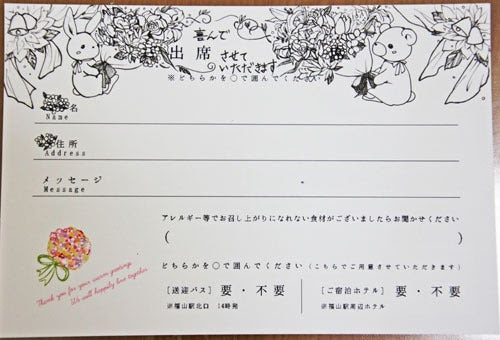 喜んで
出席 させて
いただきます
席
※どちらかを○で囲んでください
名
Name
住所
Address
メッセージ
Message
アレルギー等でお召し上がりになれない食材がございましたらお聞かせください
(　　)
どちらかを○で囲んでください (こちらでご用意させていただきます)
[送迎バス] 要・不要 [ご宿泊ホテル] 要・不要
※福山駅北口 14時発 ※福山駅周辺ホテル
Thank you for your warm greetings
We will happily live together